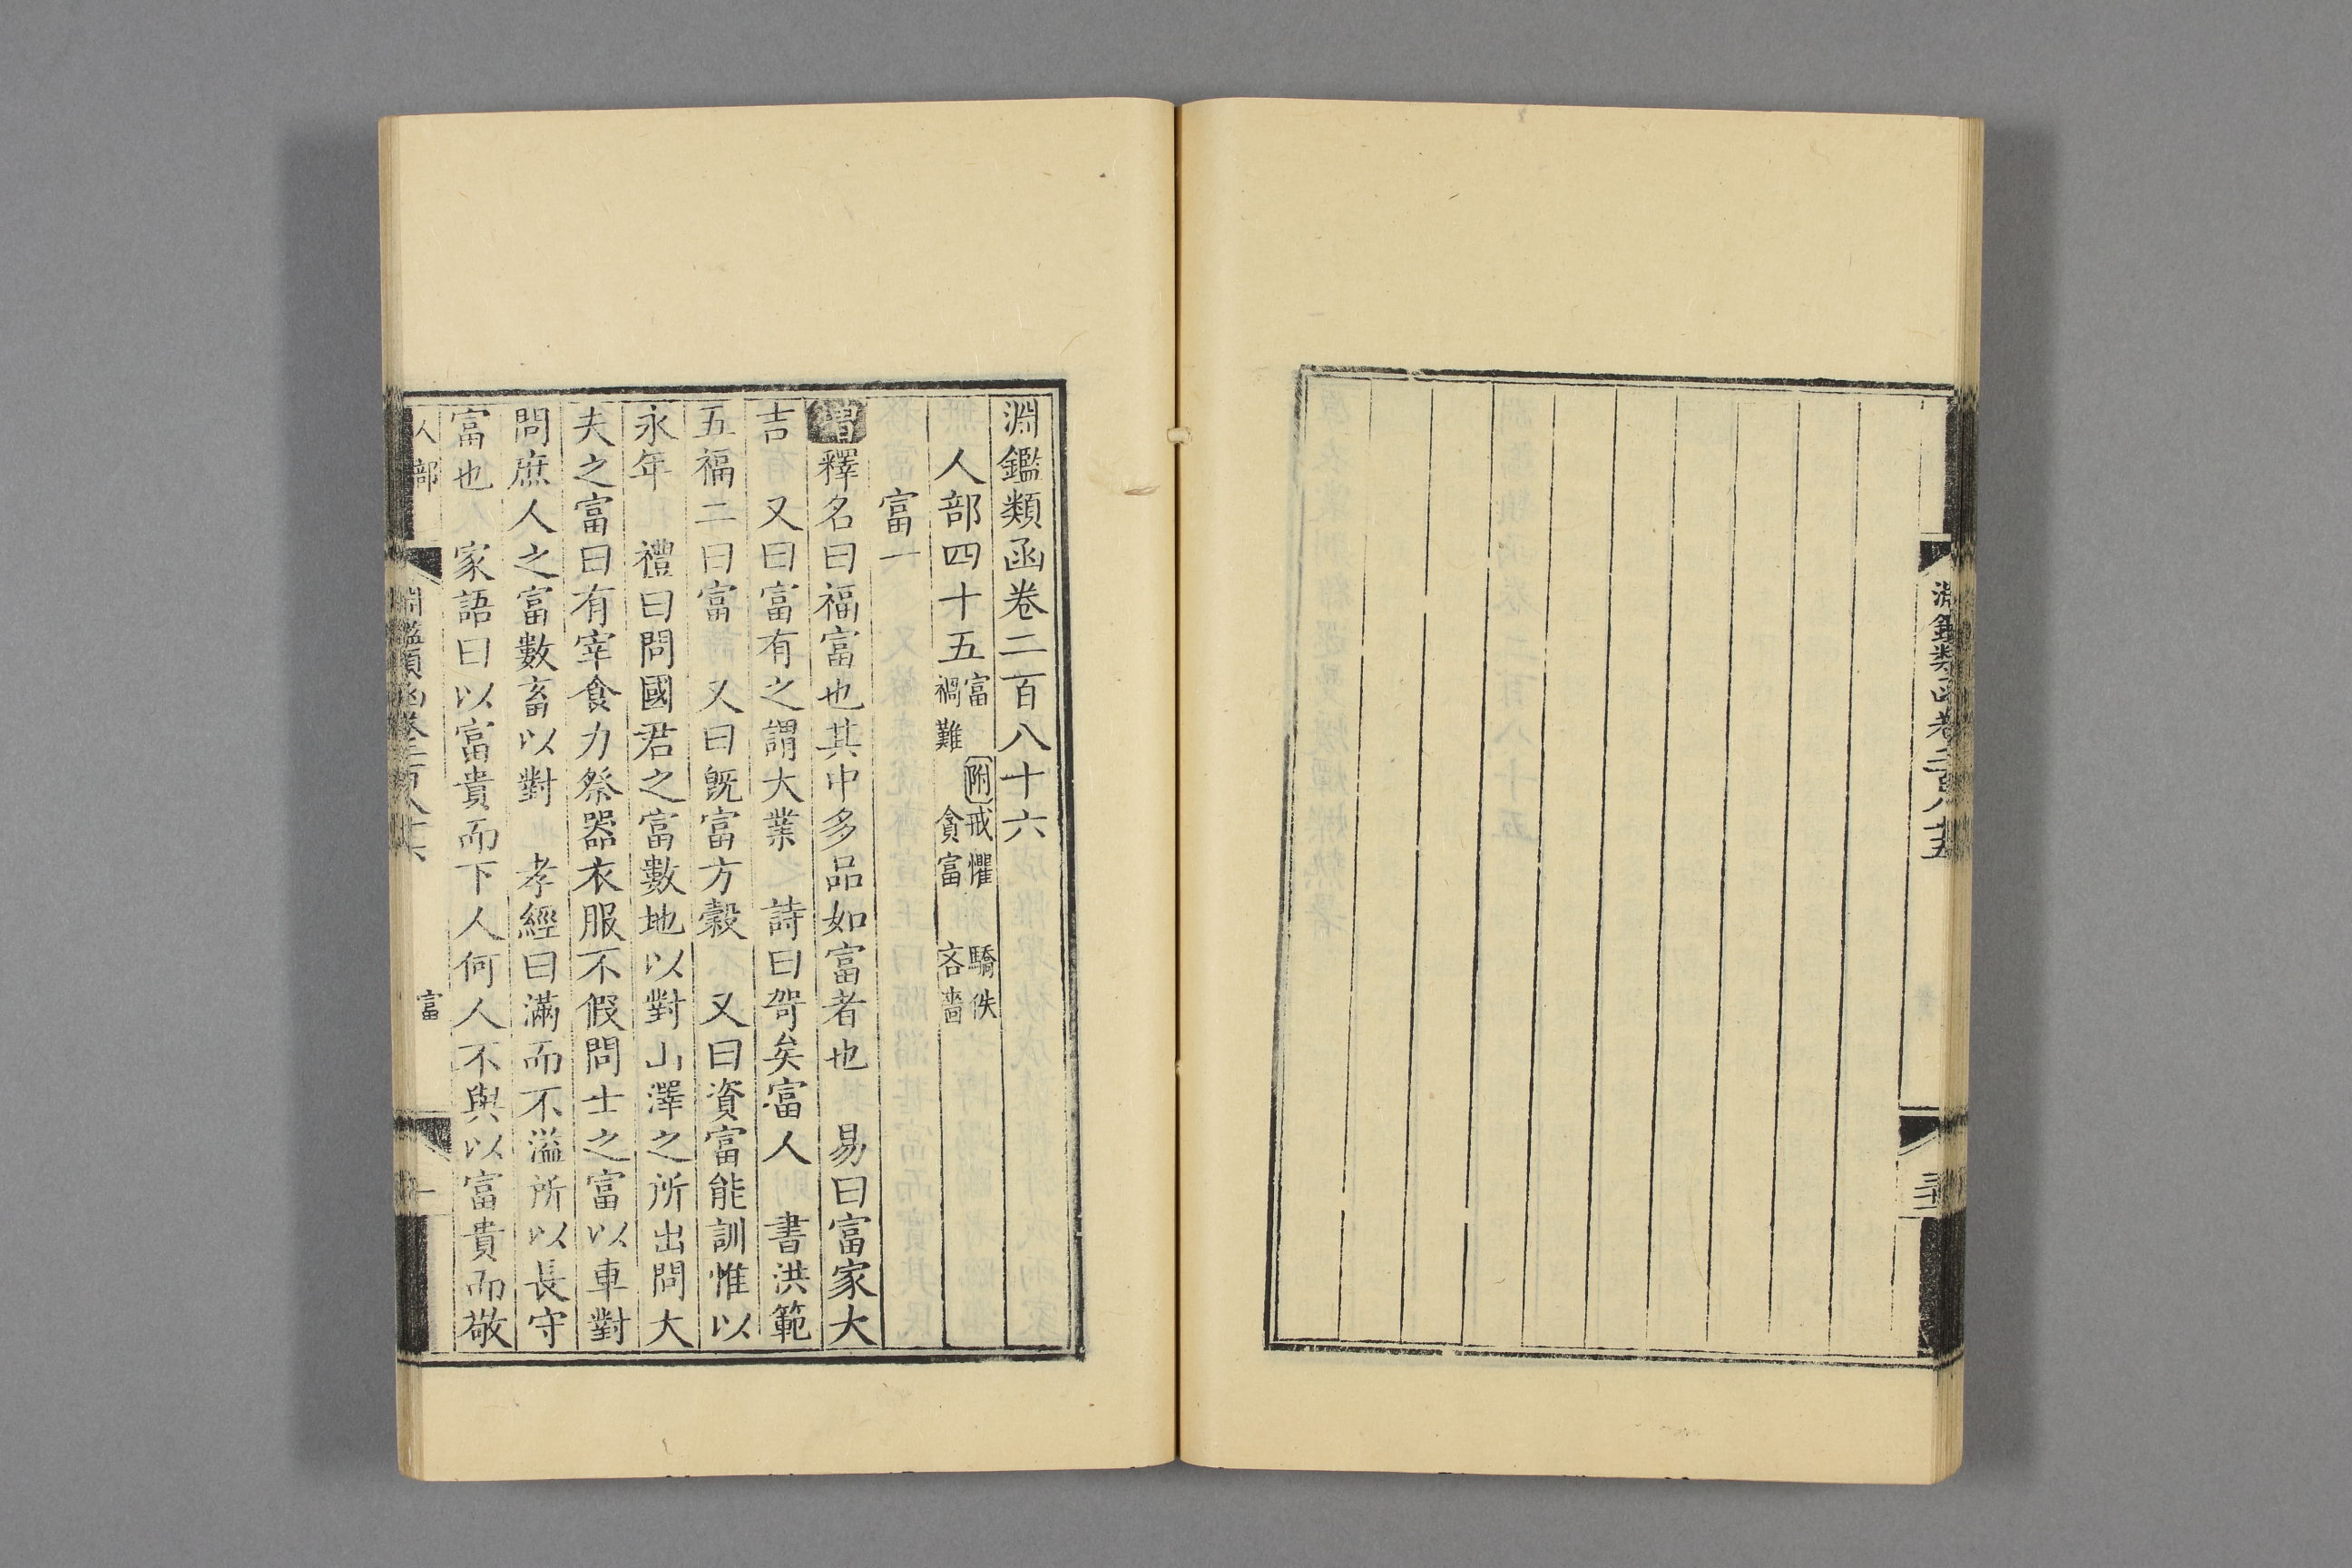 淵鑑類函卷二百八十五
三十三
淵鑑類函卷二百八十六
人部四十五富 附戒懼 驕佚
禍難 貪富 吝嗇
富一
增釋名曰福富也其中多品如富者也 易曰富家大
吉 又曰富有之謂大業 詩曰哿矣富人 書洪範
五福二曰富 又曰旣富方穀 又曰資富能訓惟以
永年 禮曰問國君之富數地以對山澤之所出問大
夫之富曰有宰食力祭器衣服不假問士之富以車對
問庶人之富數畜以對 孝經曰滿而不溢所以長守
富也 家語曰以富貴而下人何人不與以富貴而敬
人部 淵鑑類函卷二百八十六 富 一